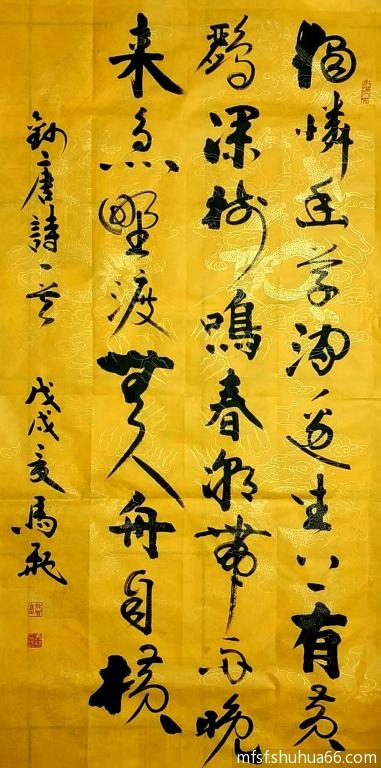 獨憐幽草澗邊生上有黄
鹂深树鳴春潮帶雨晚
来急野渡無人舟自横
録唐詩一首 戊戌夏馬
mfsfshuhua66.com